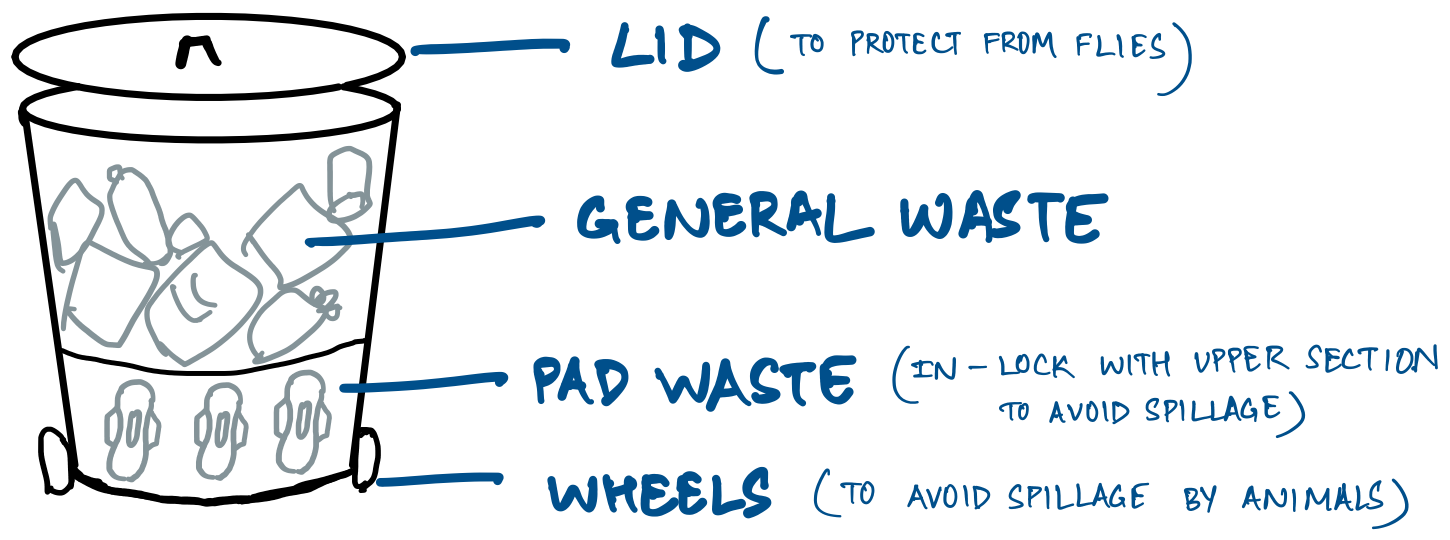 LID (TO PROTECT FROM FLIES)
GENERAL WASTE
PAD WASTE (IN-LOCK WITH UPPER SECTION
TO AVOID SPILLAGE)
WHEELS (TO AVOID SPILLAGE BY ANIMALS)